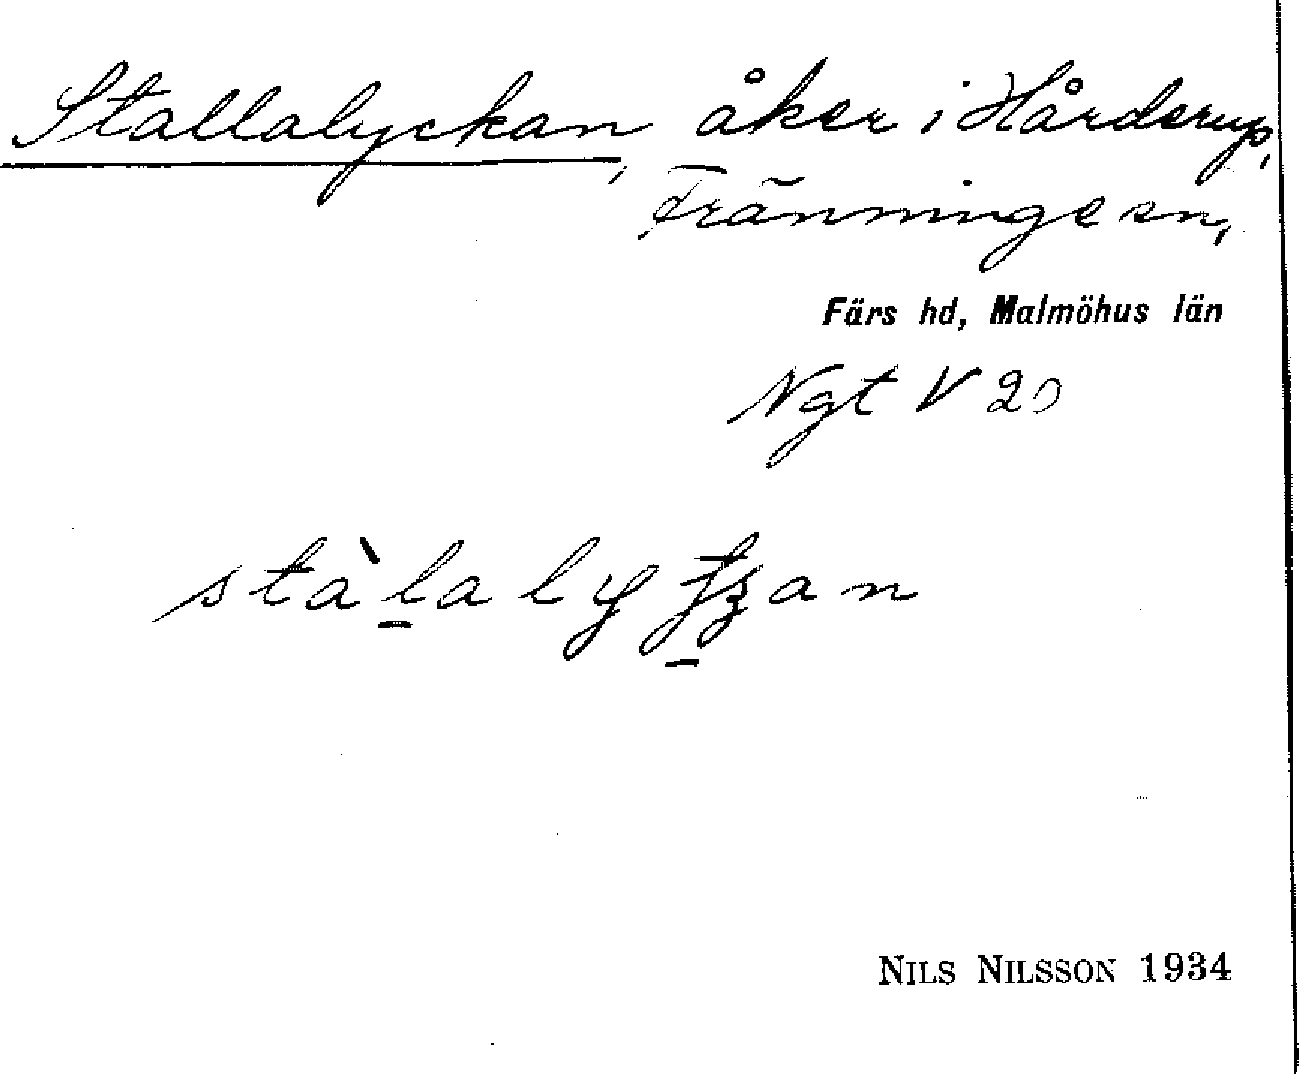 Stallalyckan, åker i Hårderup,
Tränninge sn,
Färs hd, Malmöhus län
Ngt V 20
NILS NILSSON 1934